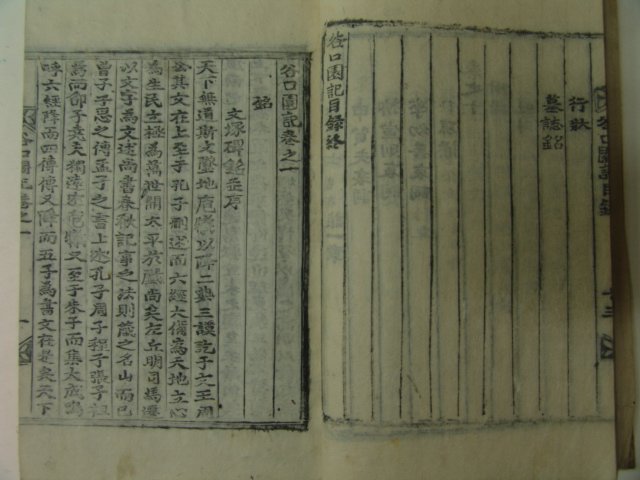 谷口園記目錄
十三
行狀
墓誌銘
谷口園記目録終
谷口園記卷之一
銘
文塚碑銘並序
天下無道斯文墜地庖犧以降二典三謨訖于文王周
公其文在上至于孔子刪述而六經大備爲天地立心
爲生民立極爲萬世開太平於戱尚矣左丘明司馬遷
以文字爲文述尚書春秋記事之法則藏之名山而已
曾子子思之傳孟子之書上述孔子周子程子張子祖
焉而邵子堯夫獨遠宗庖犧又至于朱子而集大成嗚
呼六經降而四傳傳又降而五子爲書文在是矣天下
谷口園記卷之一
一